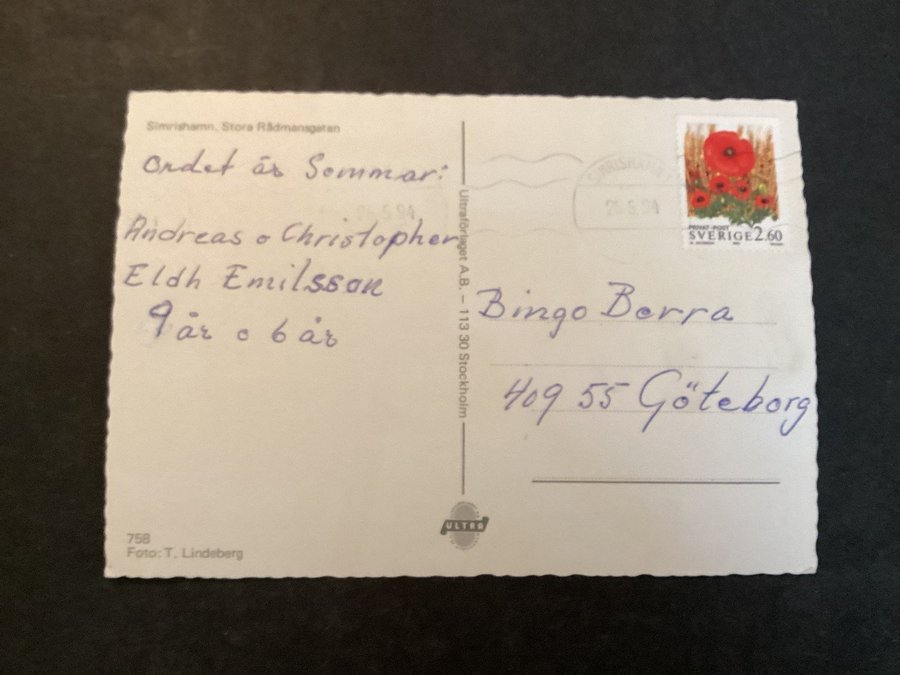 Simrishamn, Stora Rådmansgatan
Ordet är Sommar:
Andreas o Christopher
Eldh Emilsson
9 år o 6 år
758
Foto: T. Lindeberg
Ultraförlaget A.B. – 113 30 Stockholm
ULTRA
SIMRISHAMN
26.5.94
PRIVAT-POST
SVERIGE 2.60
Bingo Berra
409 55 Göteborg